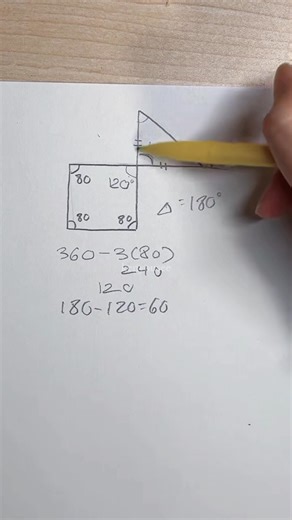 80 120°
△ = 180°
80 80
360 - 3(80)
240
120
180 - 120 = 60